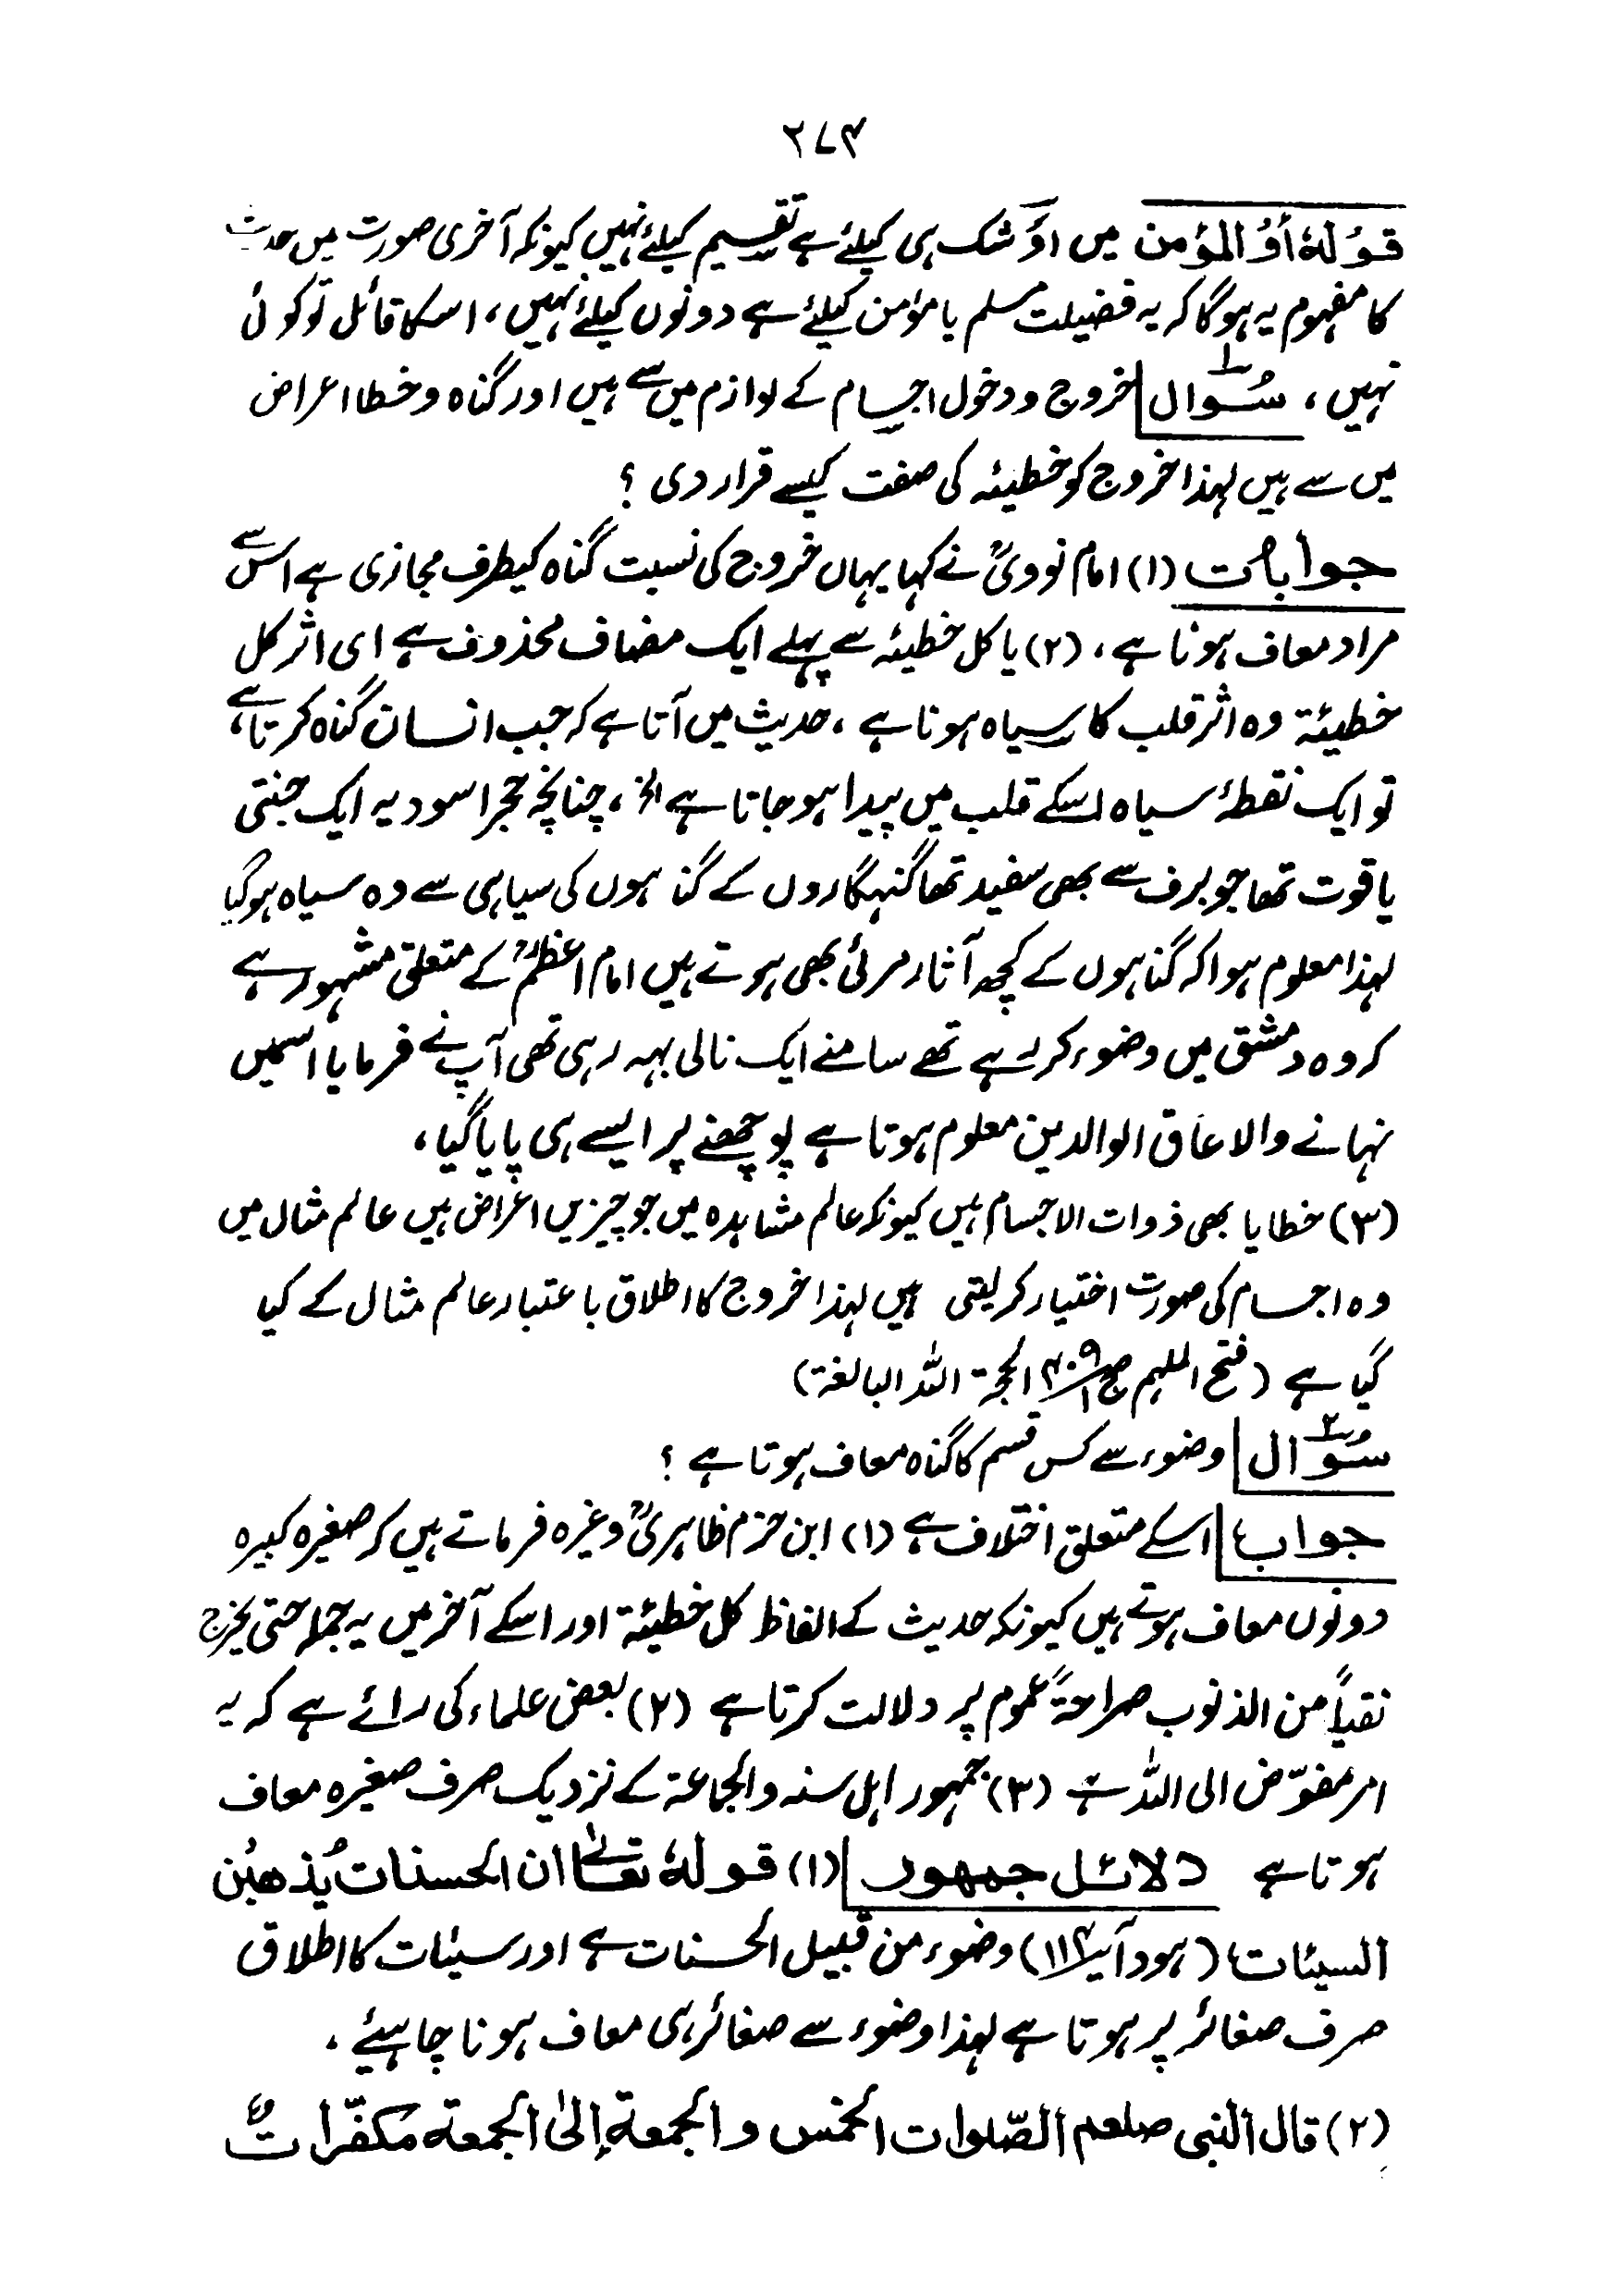 ۲۷۴
قولہٗ أوُ المؤمن میں اوْ شک ہی کیلئے ہے تقسیم کیلئے نہیں کیونکہ آخری صورت میں حدیث
کا مفہوم یہ ہوگا کہ یہ فضیلت مسلم یا مؤمن کیلئے ہے دونوں کیلئے نہیں، اسکا قائل تو کوئی
نہیں، سُوال۱ خروج و دخول اجسام کے لوازم میں سے ہیں اور گناہ و خطا اعراض
میں سے ہیں لہٰذا خروج کو خطیئہ کی صفت کیسے قرار دی ؟
جوابات (۱) امام نوویؒ نے کہا یہاں خروج کی نسبت گناہ کیطرف مجازی ہے اس سے
مراد معاف ہونا ہے، (۲) یا کل خطیئہ سے پہلے ایک مضاف محذوف ہے ای اثر کل
خطیئة وہ اثر قلب کا سیاہ ہونا ہے، حدیث میں آتا ہے کہ جب انسان گناہ کرتا ہے،
تو ایک نقطۂ سیاہ اسکے قلب میں پیدا ہو جاتا ہے الخ، چنانچہ حجر اسود یہ ایک جنتی
یاقوت تھا جو برف سے بھی سفید تھا گنہگاروں کے گناہوں کی سیاہی سے وہ سیاہ ہو گیا
لہذا معلوم ہوا کہ گناہوں کے کچھ آثار مرئی بھی ہوتے ہیں امام اعظمؒ کے متعلق مشہور ہے
کہ وہ دمشق میں وضوء کر رہے تھے سامنے ایک نالی بہہ رہی تھی آپ نے فرمایا اسمیں
نہانے والا عاق الوالدین معلوم ہوتا ہے پوچھنے پر ایسے ہی پایا گیا،
(۳) خطایا بھی ذوات الاجسام ہیں کیونکہ عالم مشاہدہ میں جو چیزیں اعراض ہیں عالم مثال میں
وہ اجسام کی صورت اختیار کر لیتی ہیں لہذا خروج کا اطلاق باعتبار عالم مثال کے کیا
گیا ہے (فتح الملہم ج۱ ۴۰۹ الحجة اللہ البالغة)
سُوال۲ وضوء سے کس قسم کا گناہ معاف ہوتا ہے ؟
جواب اسکے متعلق اختلاف ہے (۱) ابن حزم ظاہریؒ وغیرہ فرماتے ہیں کہ صغیرہ کبیرہ
دونوں معاف ہوتے ہیں کیونکہ حدیث کے الفاظ کل خطیئة اور اسکے آخر میں یہ جملہ حتی یخرج
نقیاً من الذنوب صراحۃً عموم پر دلالت کرتا ہے (۲) بعض علماء کی رائے ہے کہ یہ
امر مفوّض الی اللہ ہے (۳) جمہور اہل سنہ والجماعة کے نزدیک صرف صغیرہ معاف
ہوتا ہے دلائل جمہور (۱) قولہٗ تعالٰے ان الحسنات یُذھبُن
السیئات (ہود آیہ ۱۱۴) وضوء من قبیل الحسنات ہے اور سیئات کا اطلاق
صرف صغائر پر ہوتا ہے لہذا وضوء سے صغائر ہی معاف ہونا چاہیئے،
(۲) قال النبی صلعم الصّلوات الخمس والجمعة إلیٰ الجمعة مکفّراتٌ